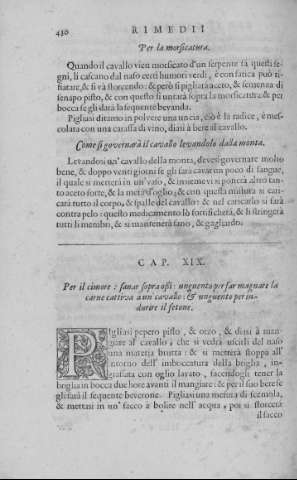 430 RIMEDII
Per la morsicatura.
Quando il cavallo vien morsicato d'un serpente fa questi se-
gni, li cascano dal naso certi humori verdi, è con fatica può ri-
fiatare, & si và storcendo: & però si pigliarà aceto, & semenza di
senapo pisto, & con questo si untarà sopra la morsicatura: & per
bocca se gli darà la sequente bevanda.
Pigliasi ditamo in polvere una uncia, ciò è la radice, è mes-
colata con una caraffa di vino, diasi à bere il cavallo.
Come si governarà il cavallo levandolo dalla monta.
Levandosi un' cavallo della monta, devesi governare molto
bene, & doppo venti giorni se gli farà cavar un poco di sangue,
il quale si metterà in un' vaso, & insieme vi si ponerà altro tan-
to aceto forte, & la metà foglio; & con questa mistura si cari-
carà tutto il corpo, & spalle del cavallo: & nel caricarlo si farà
contra pelo: questo medicamento lo fortificherà, & li stringerà
tutti li membri, & si mantenerà sano, & gagliardo.
CAP. XIX.
Per il cimore: sanar sopra ossi: unguento per far magnare la
carne cattiva a un cavallo: & unguento per in-
durire il fetone.
Pigliasi pepero pisto, & orzo, & diesi à man-
giare al cavallo, che si vedrà uscirli del naso
una materia brutta: & si metterà stoppa all'
intorno dell' imboccatura della briglia, in-
grassata con oglio lavato, facendogli tener la
briglia in bocca due hore avanti il mangiare: & per il suo bere se
gli farà il sequente beverone. Pigliasi una misura di scandla,
& mettasi in un' sacco à bolire nell' acqua, poi si storcerà
il sacco